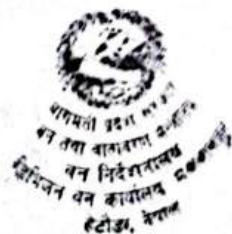 बागमती प्रदेश सरकार
वन तथा वातावरण मन्त्रालय
वन निर्देशनालय
डिभिजन वन कार्यालय
हेटौंडा, नेपाल